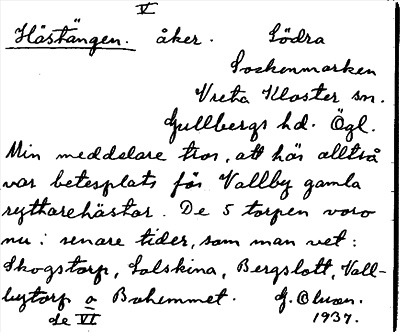 V
Hästängen. åker. Södra
Sockenmarken
Vreta Kloster sn.
Gullbergs hd. Ögl.
Min meddelare tror, att här alltså
var betesplats för Vallby gamla
ryttarehästar. De 5 torpen voro
nu i senare tider, som man vet:
Skogstorp, Solskina, Bergslott, Vall-
bytorp o Bohemmet. G. Olson.
de VI 1937.